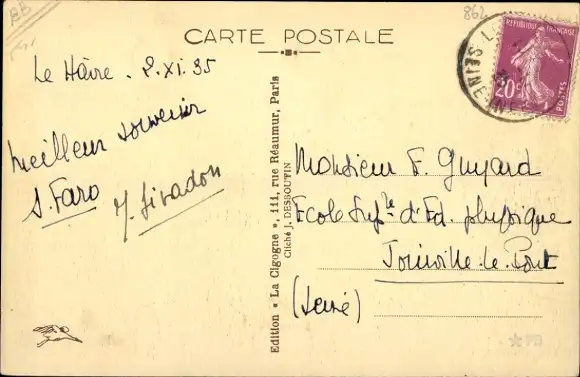 862
CARTE POSTALE
RÉPUBLIQUE FRANÇAISE
20c
POSTES
Le Hâvre . 2.XI.35
Meilleur souvenir
S. Faro
Y. Sivadon
Edition « La Cigogne », 111, rue Réaumur, Paris
Cliché J. DESBOUTIN
Monsieur F. Guyard
Ecole Suple d'Ed. physique
Joinville-le-Pont
(Seine)